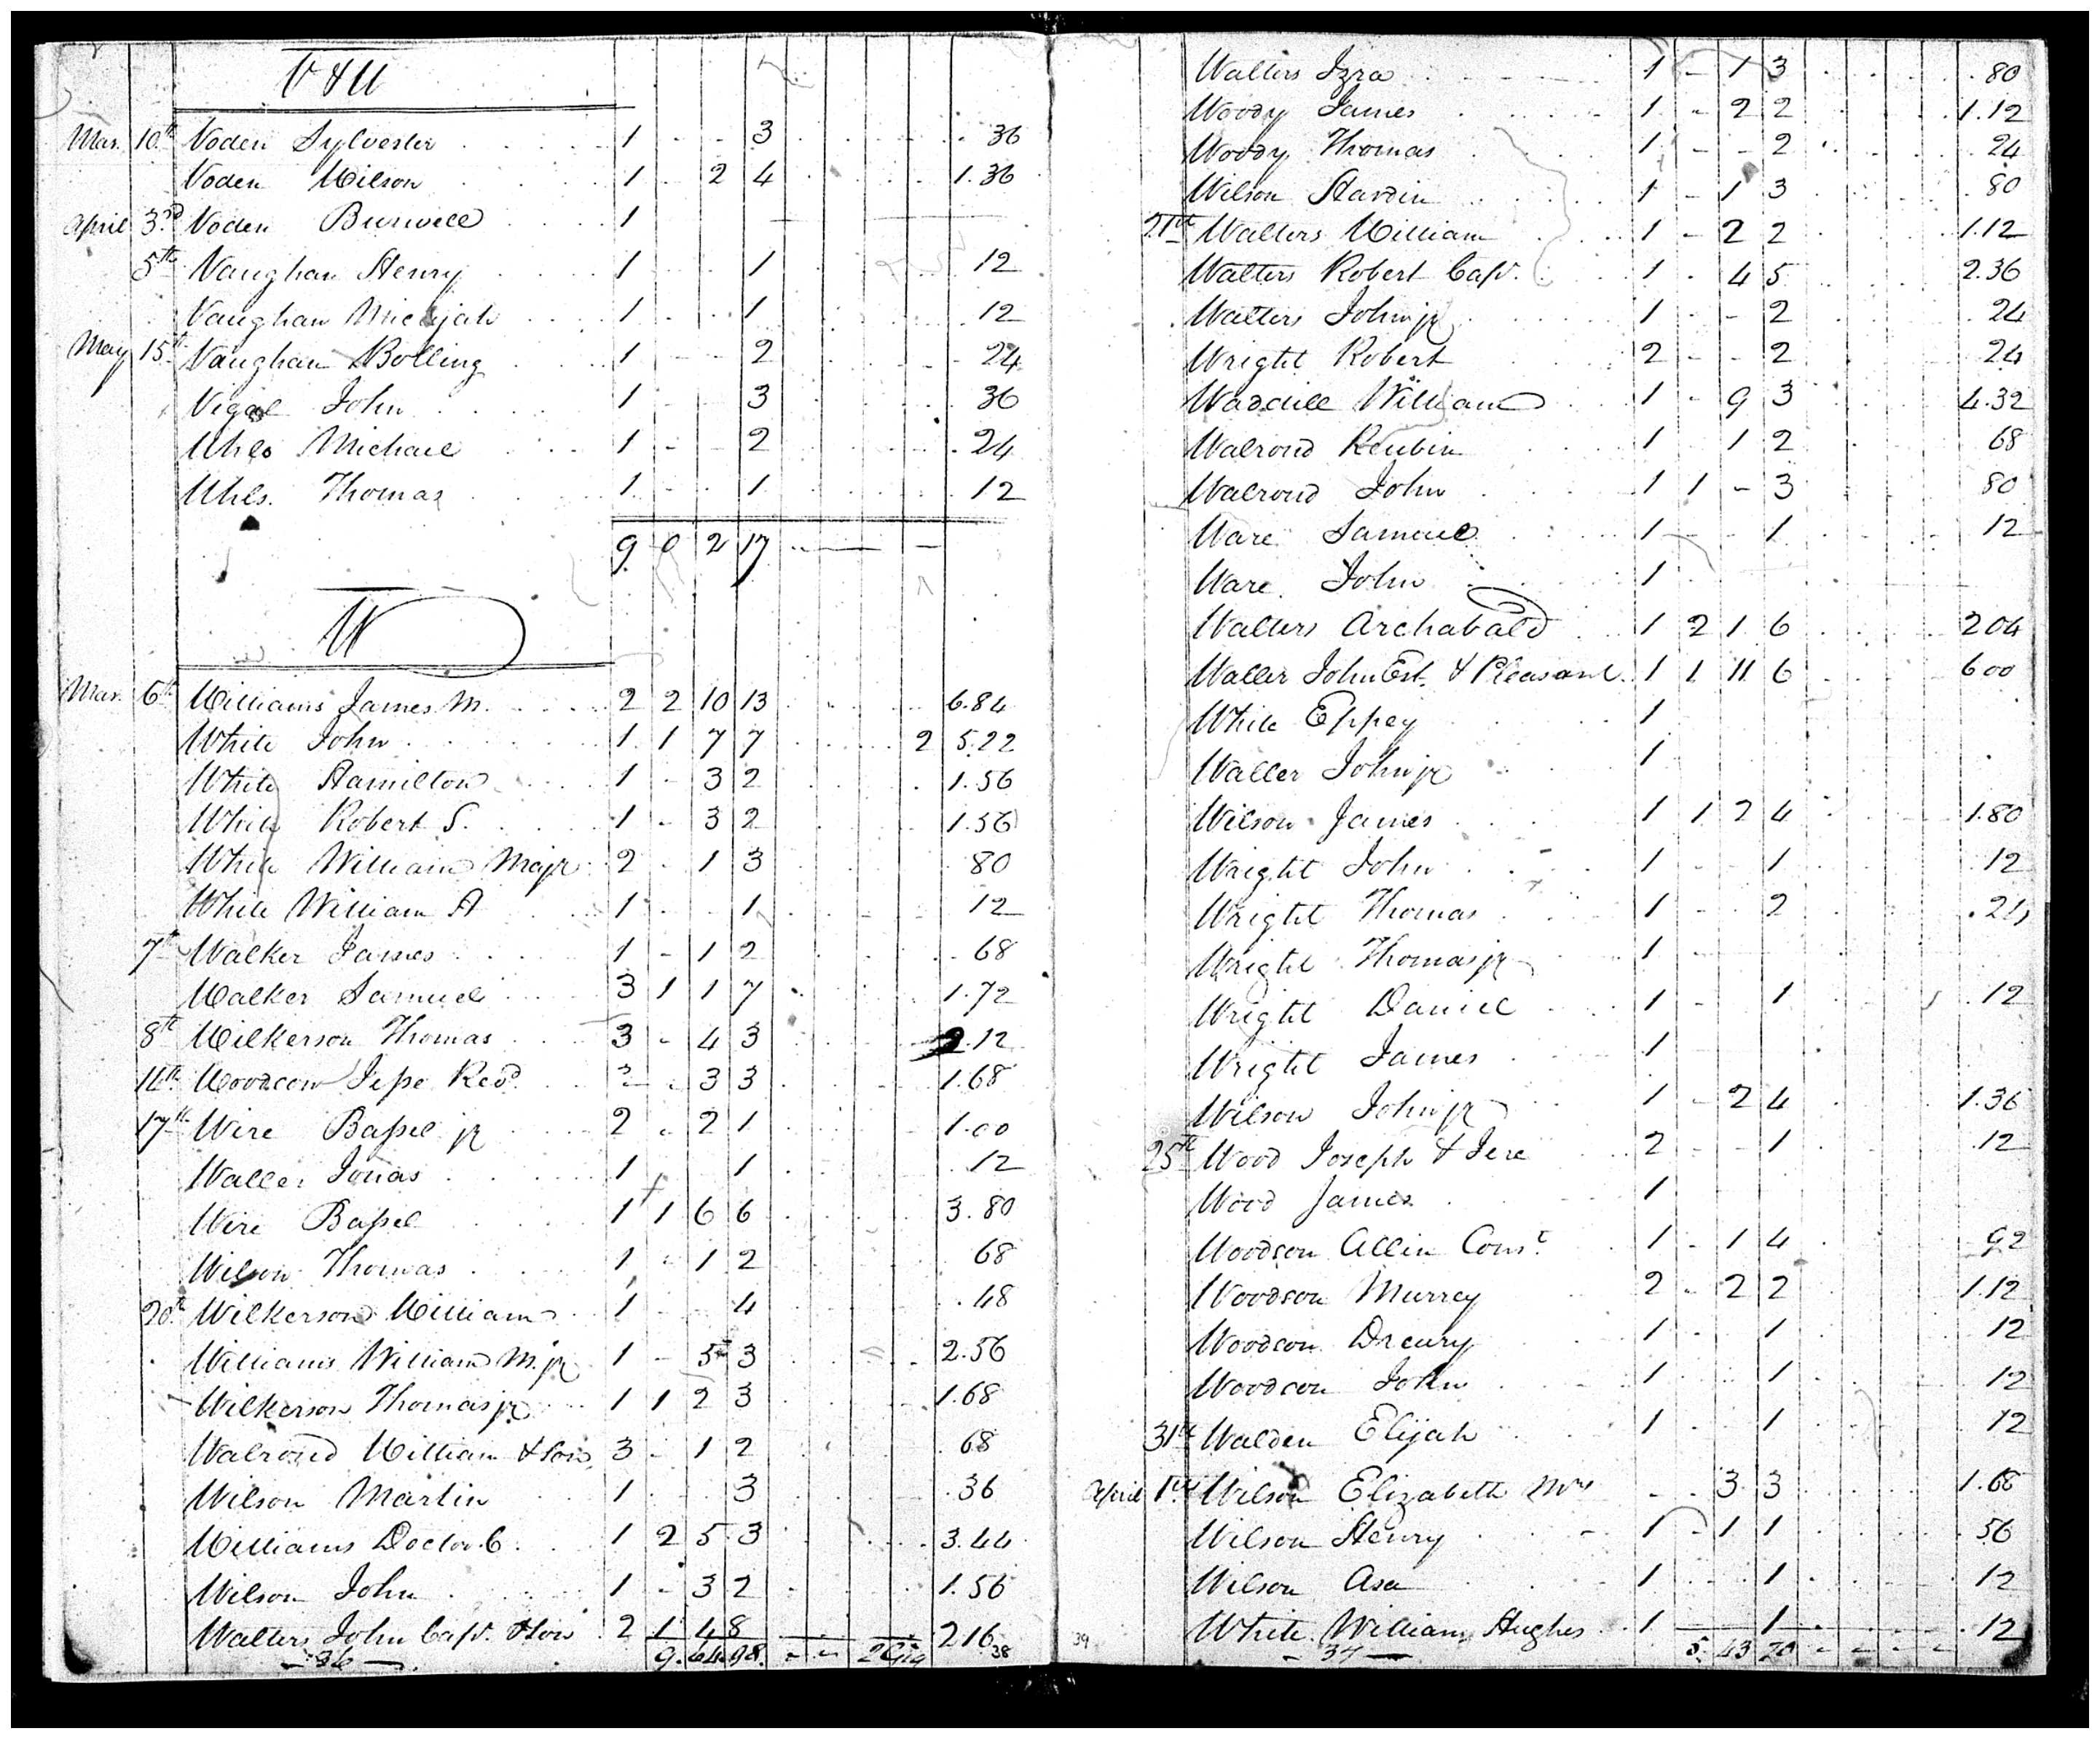 V & U
Mar. 10th Voden Sylvester 1 - - 3 36
Voden Wilson 1 - 2 4 1.36
April 3rd Voden Burwell 1
5th Vaughan Henry 1 1 12
Vaughan Micajah 1 1 12
May 15th Vaughan Bolling 1 - - 2 24
John 1 - - 3 36
Uhls Michael 1 - - 2 24
Uhls. Thomas 1 - - 1 12
9 0 2 17
W
Mar. 6th Williams James M. 2 2 10 13 6.84
White John 1 1 7 7 2 5.22
White Hamilton 1 - 3 2 1.56
White Robert S. 1 - 3 2 1.56
White William Majr 2 - 1 3 80
White William A 1 - - 1 12
7th Walker James 1 - 1 2 68
Walker Samuel 3 1 1 7 1.72
8th Wilkerson Thomas 3 - 4 3 2.12
11th Woodson Jesse Revd. 2 - 3 3 1.68
17th Wire Bassel jr 2 - 2 1 1.00
Waller Jonas 1 1 12
Wire Bassel 1 1 6 6 3.80
Wilson Thomas 1 - 1 2 68
20th Wilkerson William 1 4 48
Williams William M. jr 1 - 5 3 2.56
Wilkerson Thomas jr 1 1 2 3 1.68
Walrond William & son 3 - 1 2 68
Wilson Martin 1 - - 3 36
Williams Doctor C. 1 2 5 3 3.44
Wilson John 1 - 3 2 1.56
Walters John Capt. & son 2 1 - 8 2 16
- 36 - 9. 64. 98. 38
Walters Izra 1 - 1 3 80
Woody James 1 - 2 2 1.12
Woody Thomas 1 - - 2 24
Wilson Hardin 1 - 1 3 80
21st Walters William 1 - 2 2 1.12
Walters Robert Capt. 1 - 4 5 2.36
Walters John jr 1 - - 2 24
Wright Robert 2 - - 2 24
Waddill William 1 - 9 3 4.32
Walrond Reubin 1 1 2 68
Walrond John 1 1 - 3 80
Ware Samuel 1 - - 1 12
Ware. John 1
Walters Archabald 1 2 1 6 2 04
Waller John Est. & Pleasant 1 1 11 6 6 00
White Eppey 1
Waller John jr 1
Wilson James 1 1 2 4 1.80
Wright John 1 - - 1 12
Wright Thomas 1 - - 2 .24
Wright Thomas jr 1 -
Wright Daniel 1 - 1 12
Wright James 1
Wilson John jr 1 - 2 4 1.36
25th Wood Joseph & Jere 2 - - 1 12
Wood James 1
Woodson Allin Const. 1 - 1 4 92
Woodson Murrey 2 - 2 2 1.12
Woodson Dreury 1 - 1 12
Woodson John 1 1 12
31st Walden Elijah 1 - 1 12
April 1st Wilson Elizabeth Mrs - - 3 3 1.68
Wilson Henry 1 - 1 1 56
Wilson Asa 1 1 12
39 White William Hughes 1 1 12
- 37 - 5. 43 20